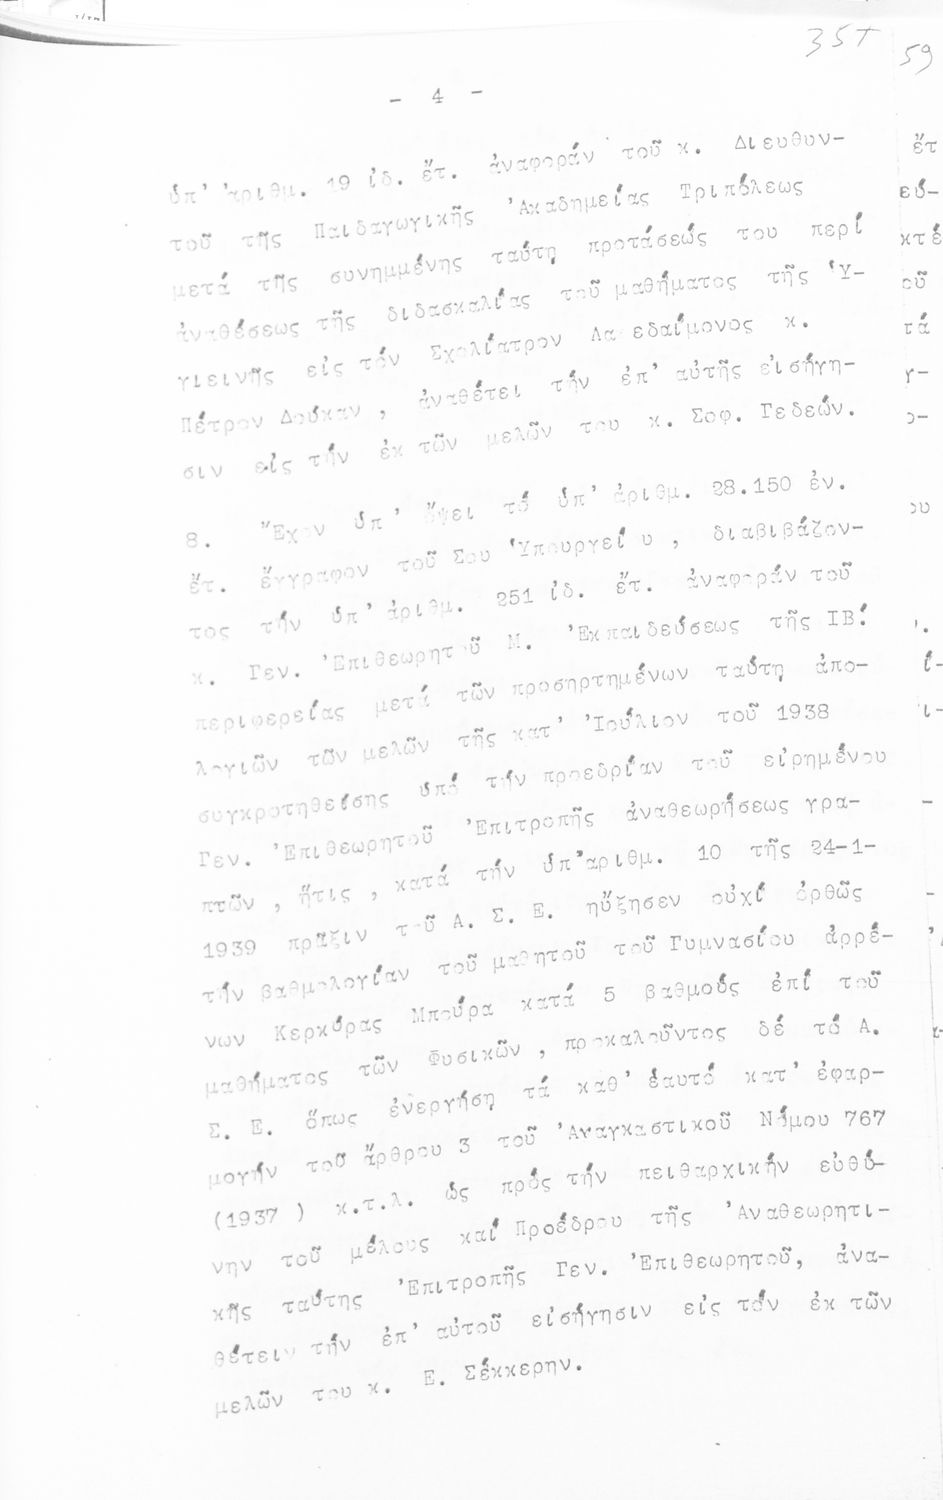 35τ
59
- 4 -
ὑπ' ἀριθμ. 19 ἰδ. ἔτ. ἀναφοράν τοῦ κ. Διευθυν-
τοῦ τῆς Παιδαγωγικῆς Ἀκαδημείας Τριπόλεως
μετά τῆς συνημμένης ταύτῃ προτάσεώς του περί
ἀναθέσεως τῆς διδασκαλίας τοῦ μαθήματος τῆς Ὑ-
γιεινῆς εἰς τόν Σχολίατρον Λακεδαίμονος κ.
Πέτρον Δούκαν, ἀναθέτει τήν ἐπ' αὐτῆς εἰσήγη-
σιν εἰς τήν ἐκ τῶν μελῶν του κ. Σοφ. Γεδεών.
8. Ἔχον ὑπ' ὄψει τό ὑπ' ἀριθμ. 28.150 ἐν.
ἔτ. ἔγγραφον τοῦ Σου Ὑπουργείου, διαβιβάζον-
τος τήν ὑπ' ἀριθμ. 251 ἰδ. ἔτ. ἀναφοράν τοῦ
κ. Γεν. Ἐπιθεωρητοῦ Μ. Ἐκπαιδεύσεως τῆς ΙΒ΄
περιφερείας μετά τῶν προσηρτημένων ταύτῃ ἀπο-
λογιῶν τῶν μελῶν τῆς κατ' Ἰούλιον τοῦ 1938
συγκροτηθείσης ὑπό τήν προεδρίαν τοῦ εἰρημένου
Γεν. Ἐπιθεωρητοῦ Ἐπιτροπῆς ἀναθεωρήσεως γρα-
πτῶν, ἥτις, κατά τήν ὑπ'ἀριθμ. 10 τῆς 24-1-
1939 πρᾶξιν τοῦ Α. Σ. Ε. ηὔξησεν οὐχί ὀρθῶς
τήν βαθμολογίαν τοῦ μαθητοῦ τοῦ Γυμνασίου ἀρρέ-
νων Κερκύρας Μπούρα κατά 5 βαθμούς ἐπί τοῦ
μαθήματος τῶν Φυσικῶν, προκαλοῦντος δέ τό Α.
Σ. Ε. ὅπως ἐνεργήσῃ τά καθ' ἑαυτό κατ' ἐφαρ-
μογήν τοῦ ἄρθρου 3 τοῦ Ἀναγκαστικοῦ Νόμου 767
(1937 ) κ.τ.λ. ὡς πρός τήν πειθαρχικήν εὐθύ-
νην τοῦ μέλους καί Προέδρου τῆς Ἀναθεωρητι-
κῆς ταύτης Ἐπιτροπῆς Γεν. Ἐπιθεωρητοῦ, ἀνα-
θέτειν τήν ἐπ' αὐτοῦ εἰσήγησιν εἰς τόν ἐκ τῶν
μελῶν του κ. Ε. Σέκκερην.